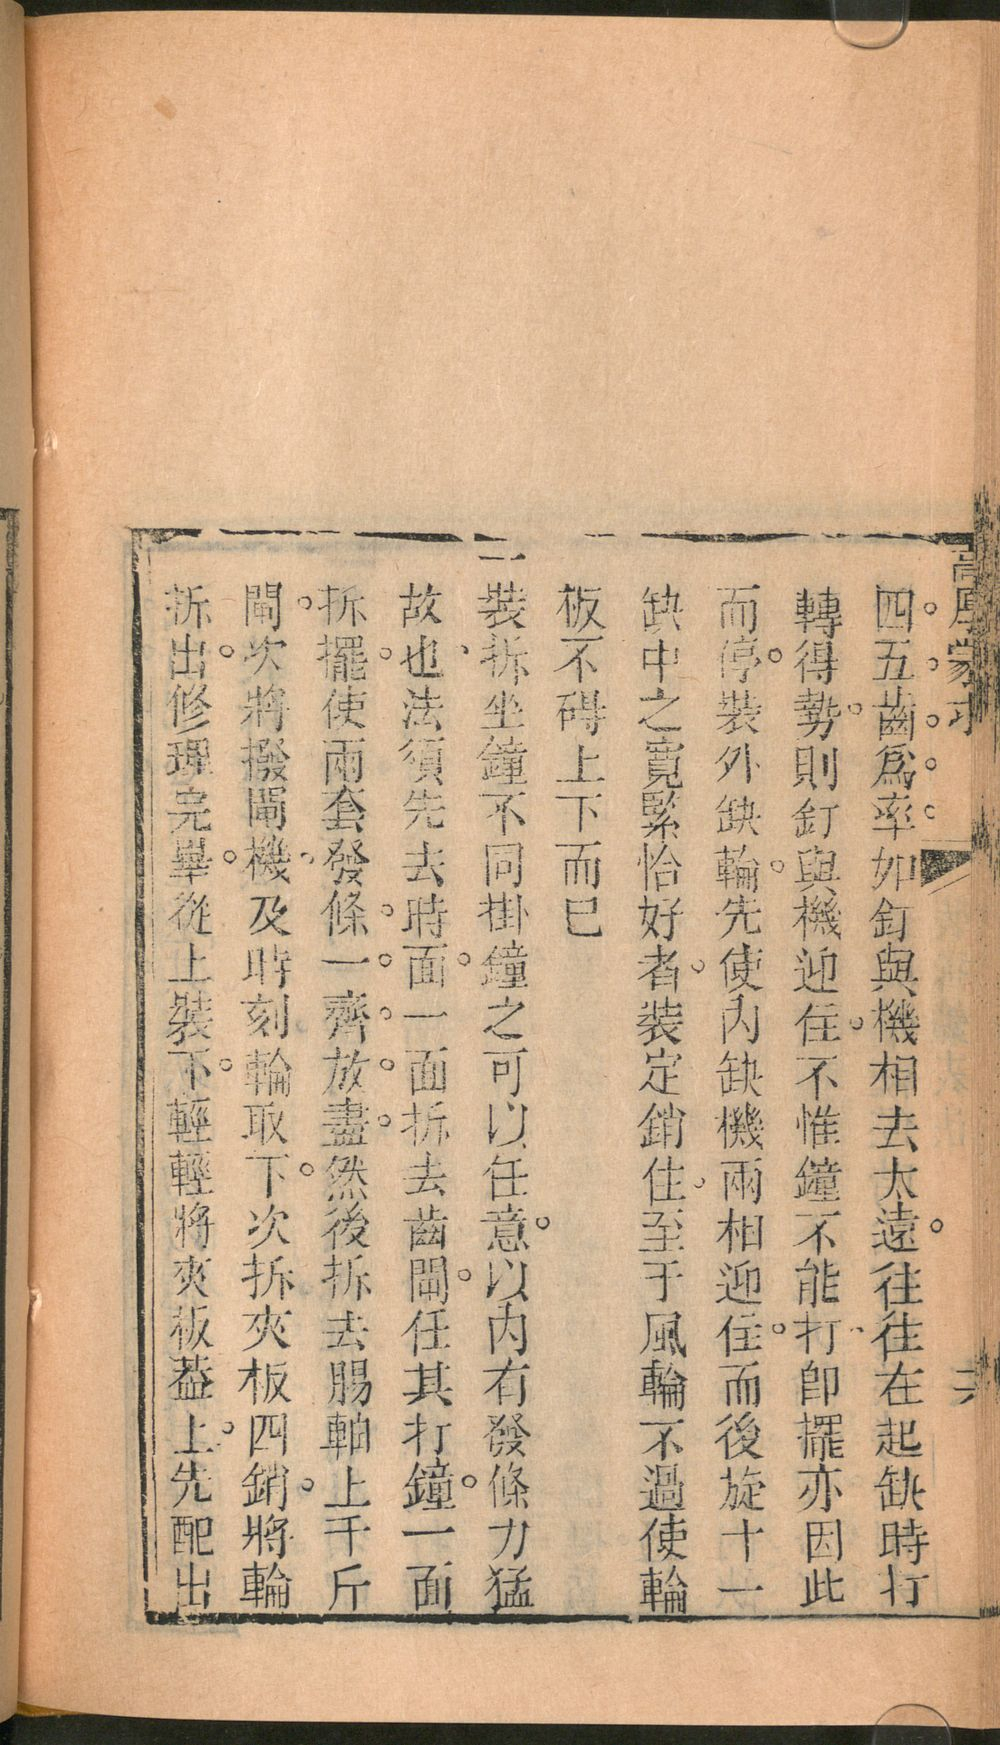 高厚蒙求
四五齒爲率如釘與機相去太遠往往在起缺時打
轉得勢則釘與機迎住不惟鐘不能打卽擺亦因此
而停裝外缺輪先使內缺機兩相迎住而後旋十一
缺中之寬緊恰好者裝定銷住至于風輪不過使輪
板不碍上下而已
一裝拆坐鐘不同掛鐘之可以任意以內有發條力猛
故也法須先去時面一面拆去齒閘任其打鐘一面
拆擺使兩套發條一齊放盡然後拆去腸軸上千斤
閘次將撥閘機及時刻輪取下次拆夾板四銷將輪
拆出修理完畢從上裝下輕輕將夾板葢上先配出